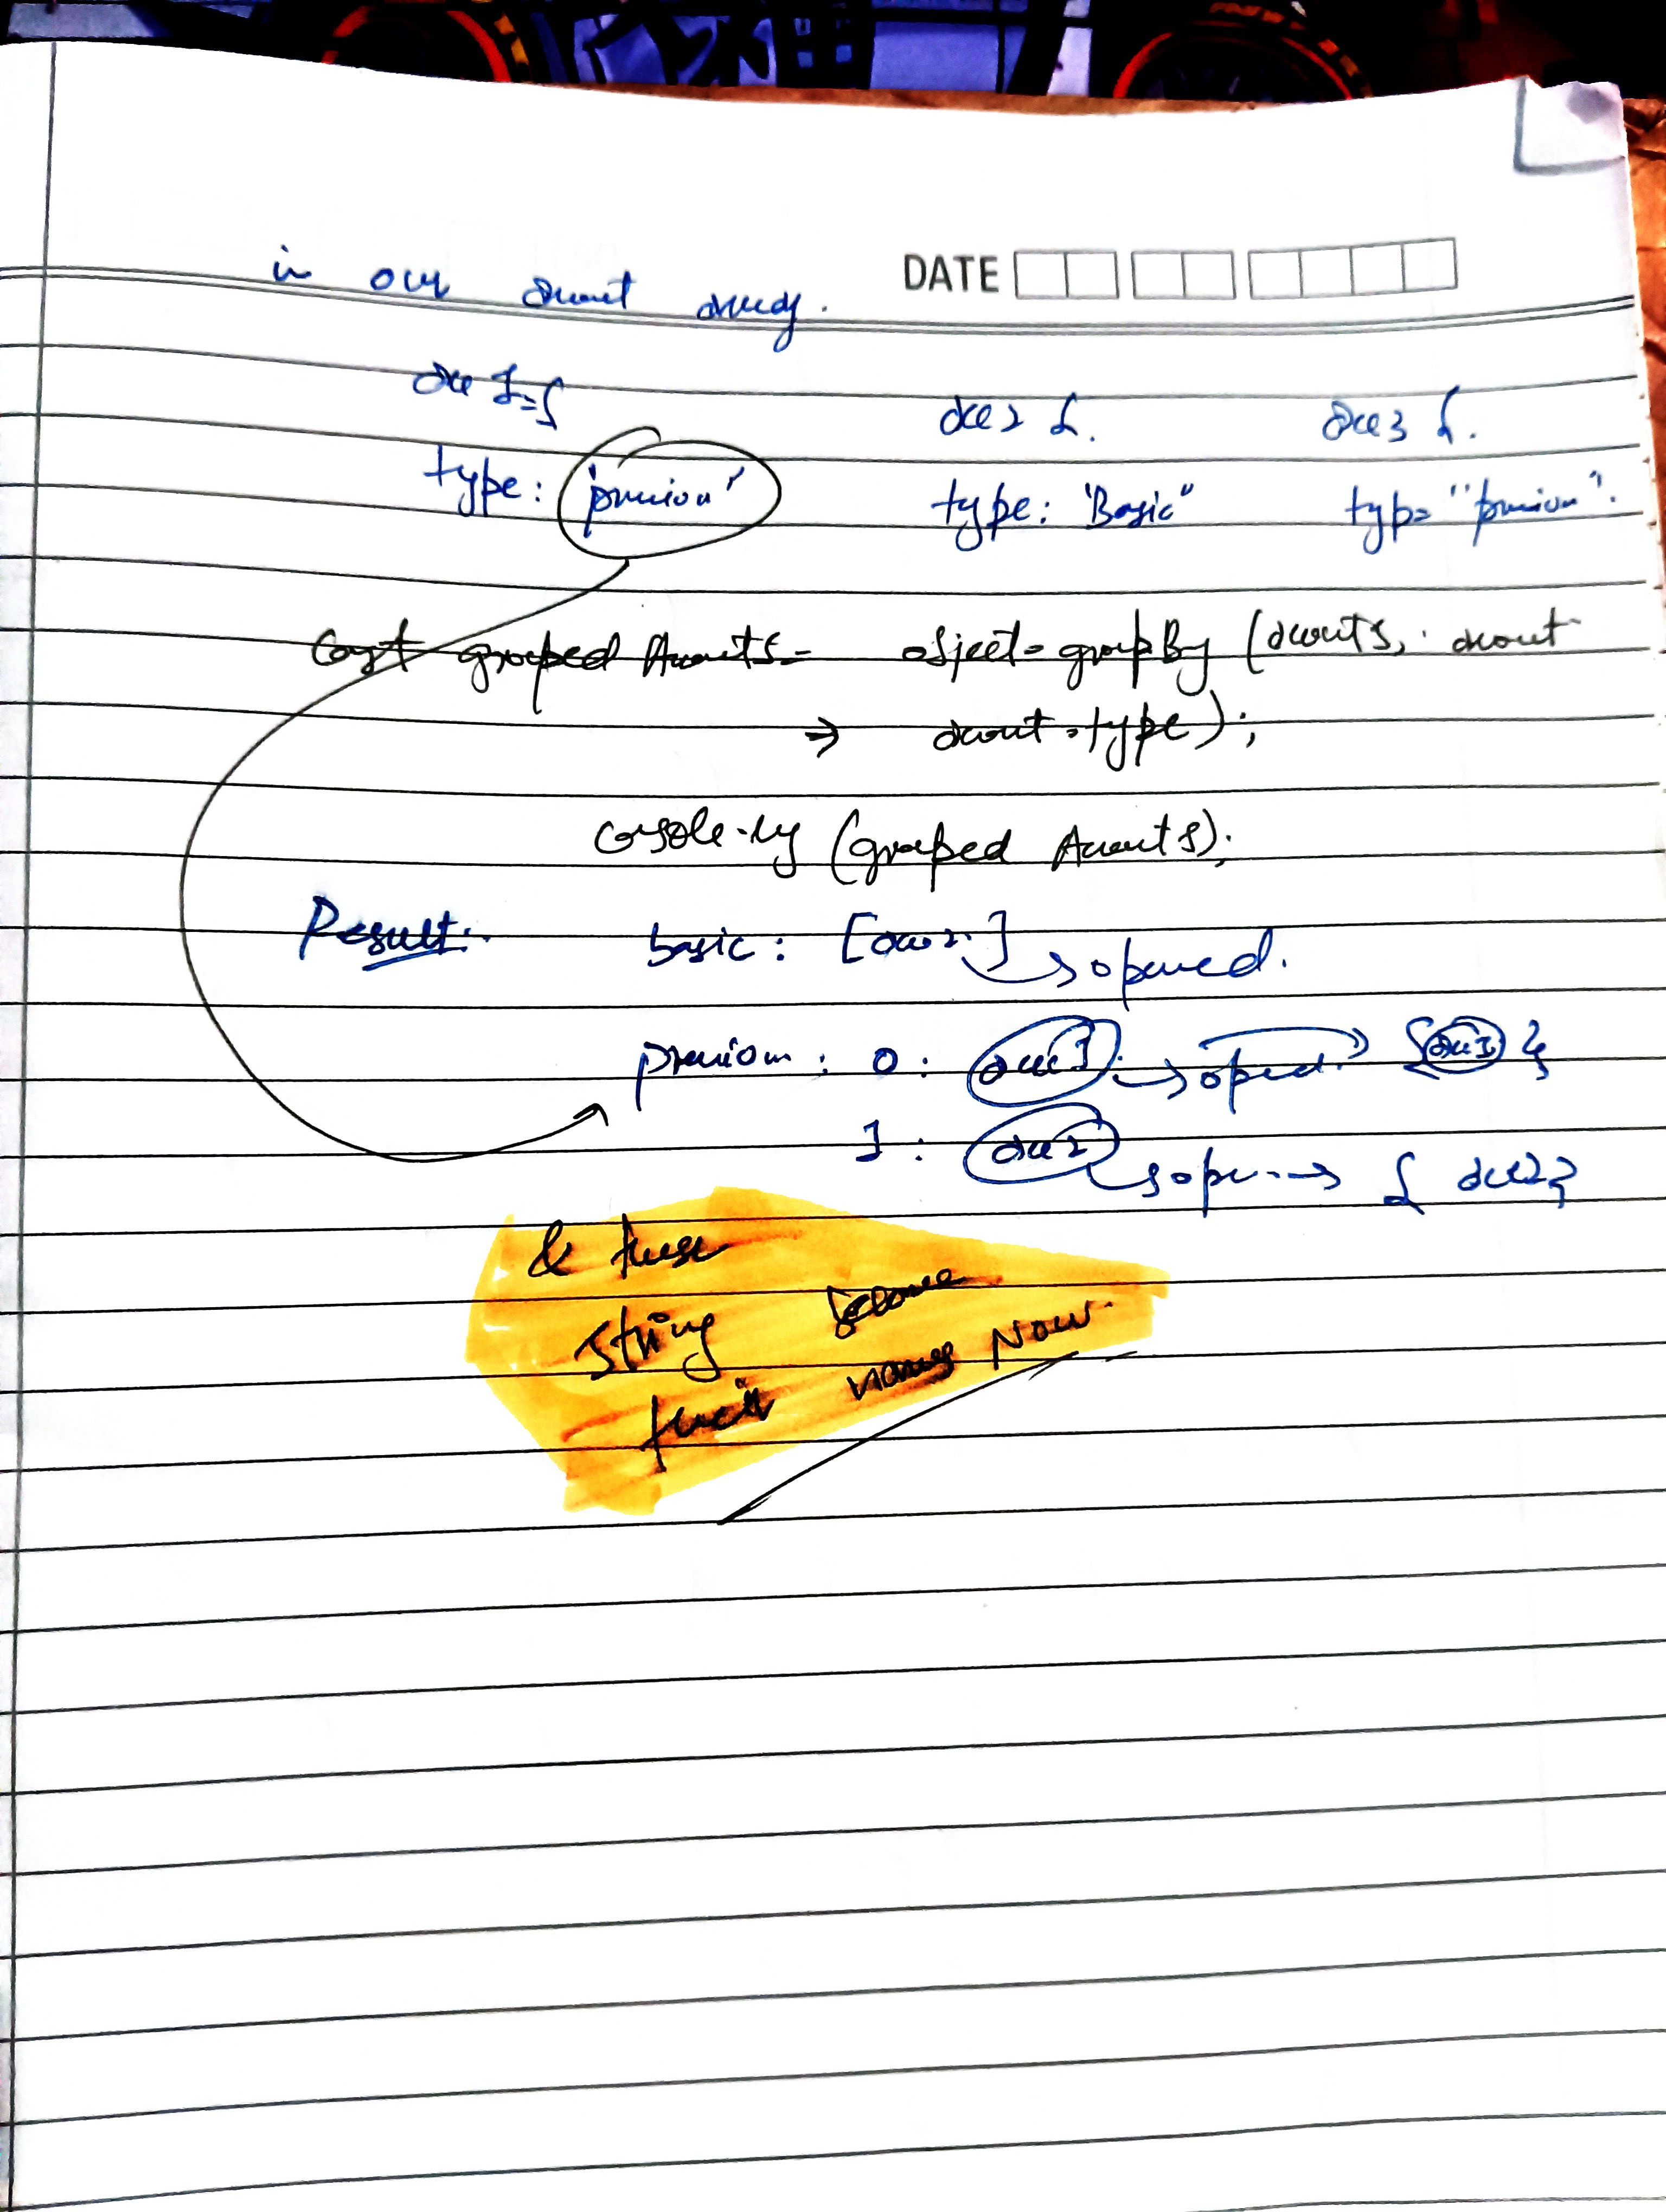 DATE
in our account array.
acc 1 = {
type: 'premium'
acc2 {.
type: 'Basic"
acc3 {.
typ= "premium".
Const grouped Accounts = object.groupBy (accounts, account
=> account.type);
console.log (grouped Accounts);
Result:
basic: [acc2.] → opened.
premium: 0: acc1. → opened. {acc1}
1: acc2 → open --> { acc2}
& these
string become
names Now.